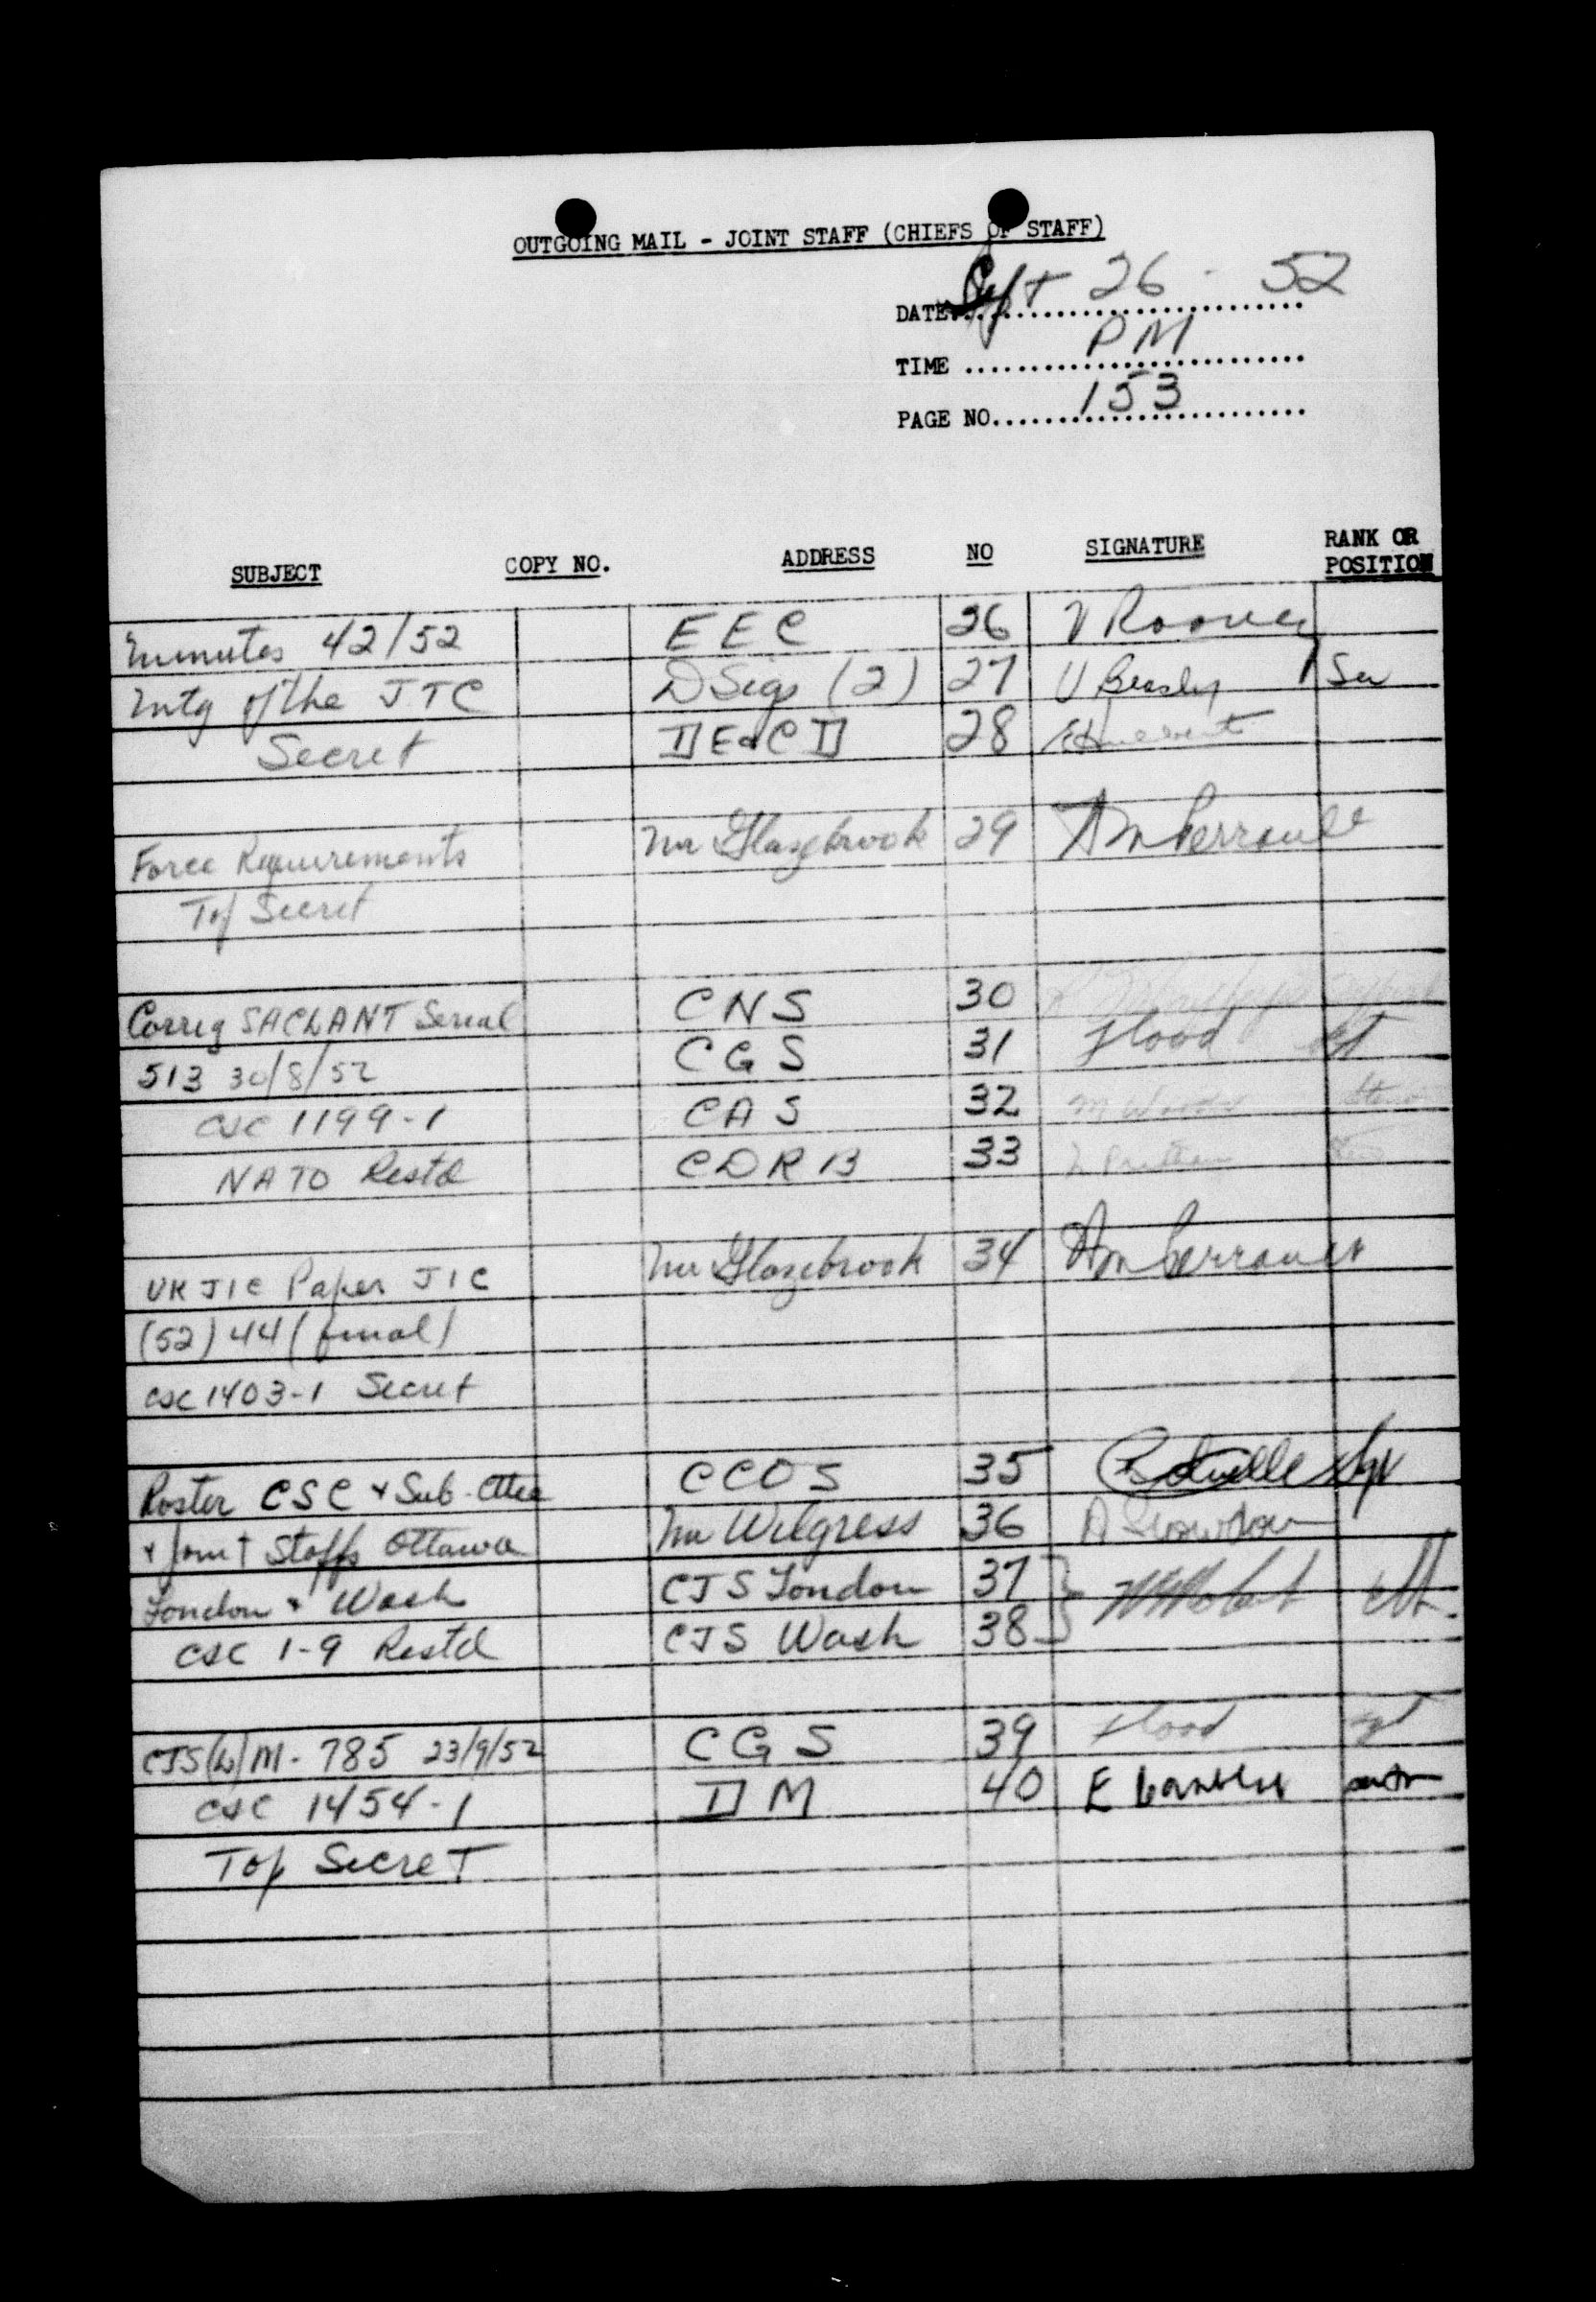 OUTGOING MAIL - JOINT STAFF (CHIEFS OF STAFF)
DATE Sept 26 - 52
TIME PM
PAGE NO. 153
SUBJECT COPY NO. ADDRESS NO SIGNATURE RANK OR POSITION
Minutes 42/52 EEC 26 V Rooney
Mtg of the JTC D Sigs (2) 27 V Beasley
Secret D E & C D 28
Force Requirements Mr Glazebrook 29 A M Perrault
Top Secret
Corrig SACLANT Serial CNS 30
513 30/8/52 CGS 31 Flood Sgt
CSC 1199-1 CAS 32 M Woods Steno
NATO Restd CDRB 33
UK JIC Paper JIC Mr Glazebrook 34 A M Perrault
(52) 44 (final)
CSC 1403-1 Secret
Roster CSC & Sub-Cttee CCOS 35 Sgt
& Joint Staffs Ottawa Mr Wilgress 36
London & Wash CJS London 37
CSC 1-9 Restd CJS Wash 38
CJS(L)M-785 23/9/52 CGS 39 Flood Sgt
CSC 1454-1 DM 40 E
Top Secret